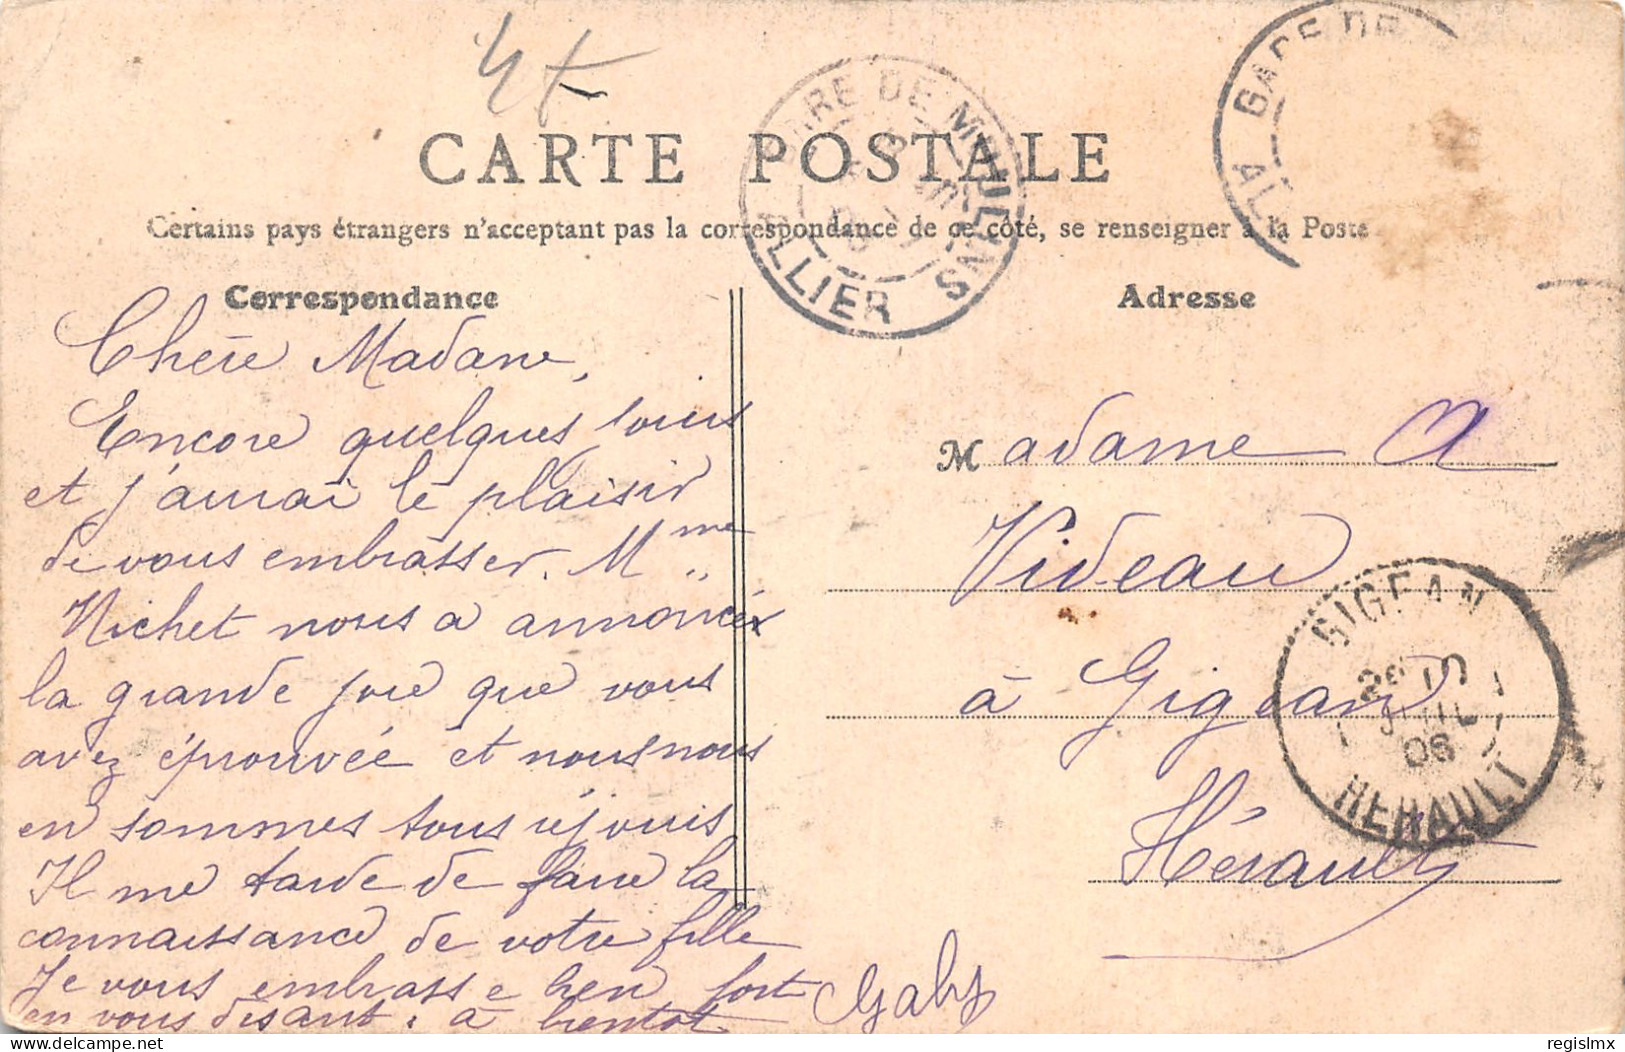 4
CARTE POSTALE
Certains pays étrangers n'acceptent pas la correspondance de ce côté, se renseigner à la Poste
Correspondance
Adresse
GARE DE MOULINS
ALLIER
GARE DE
ALL
Chère Madame,
Encore quelques jours
et j'aurai le plaisir
de vous embrasser. Mme
Nichet nous a annoncée
la grande joie que vous
avez éprouvée et nous nous
en sommes tous réjouis
Il me tarde de faire la
connaissance de votre fille
Je vous embrasse bien fort
en vous disant : à bientôt.
Gaby
Madame A
Videau
à Gigean
Hérault
GIGEAN
JUIL
06
HERAULT
delcampe.net
regislmx